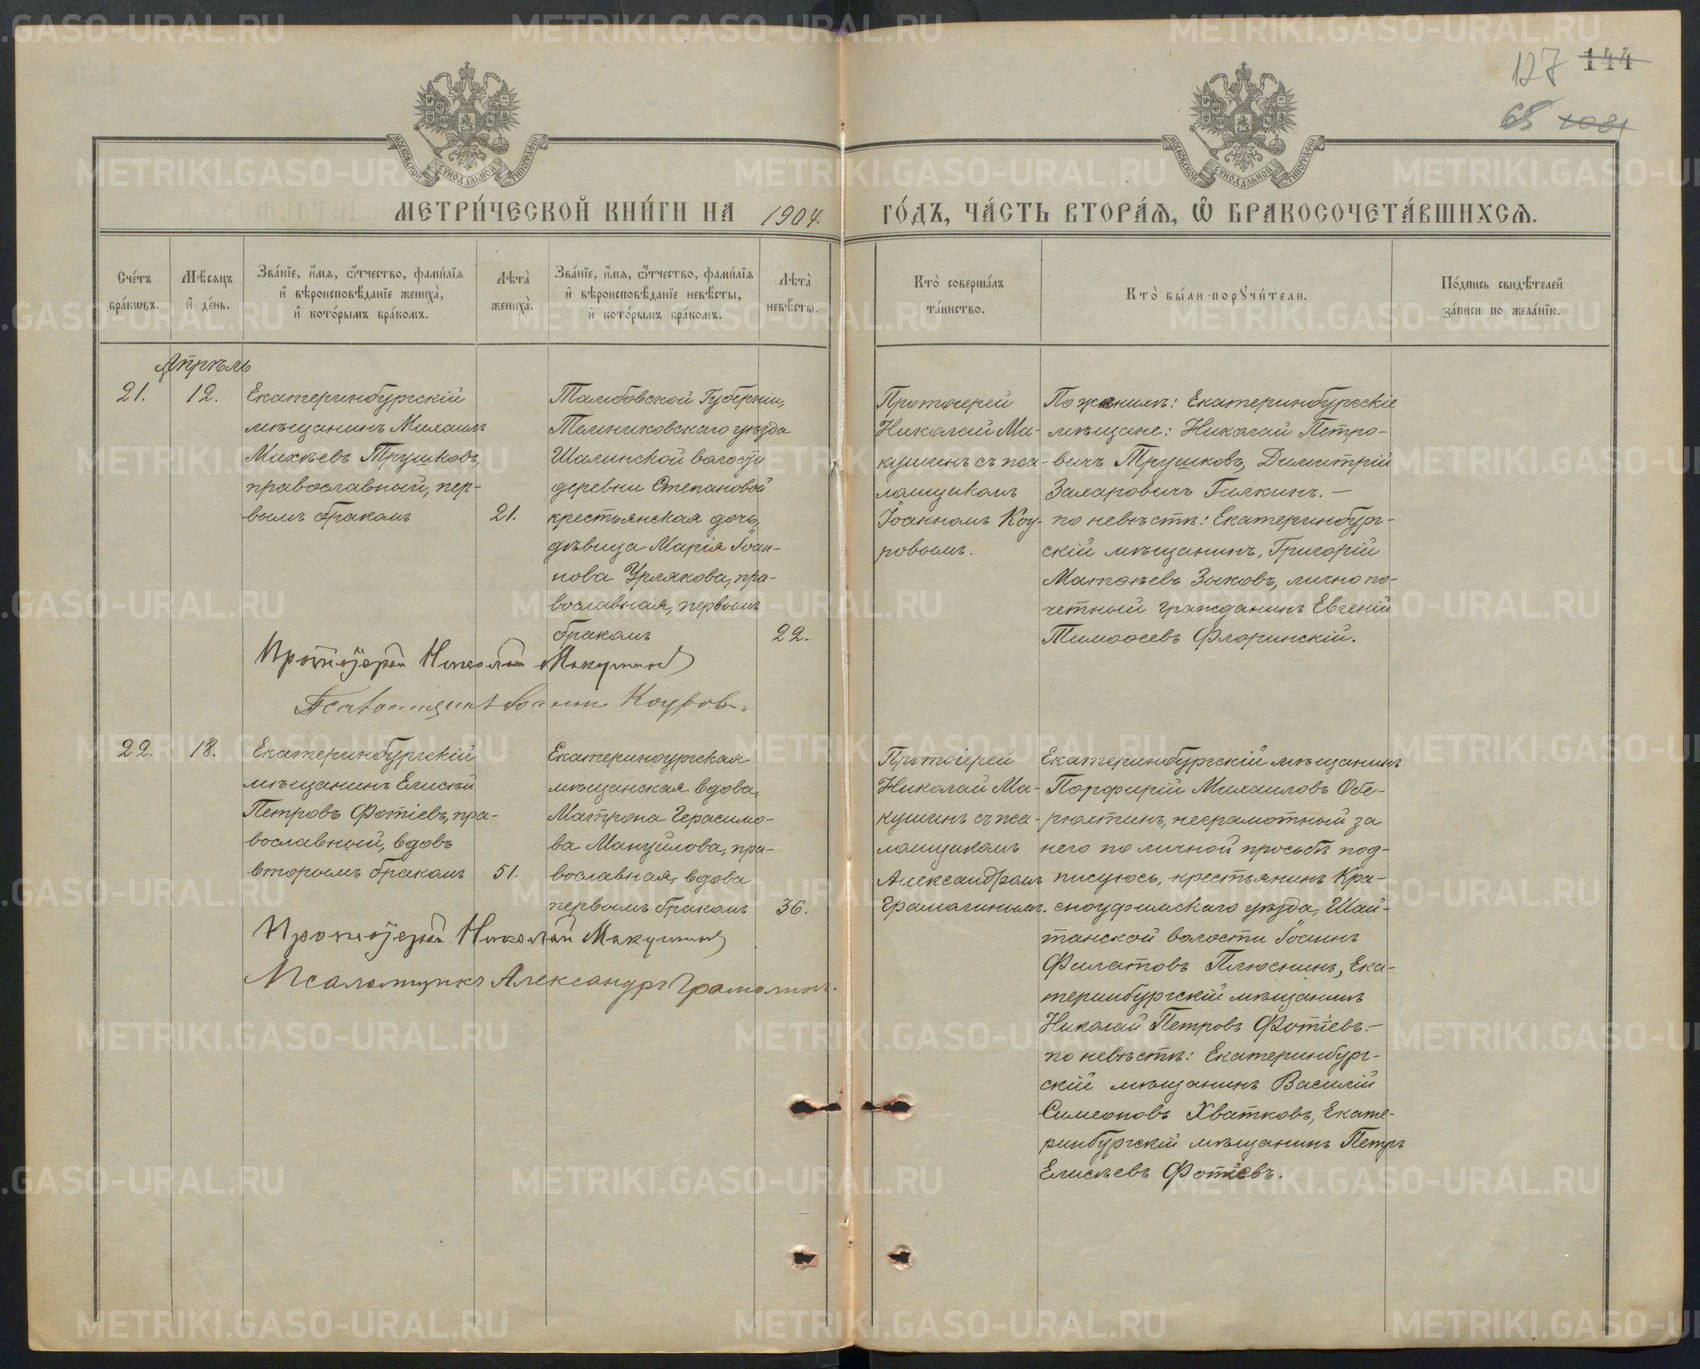 127 144
65 1031
МЕТРИ́ЧЕСКОЙ КНИ́ГИ НА 1904. ГО́ДЪ, ЧА́СТЬ ВТОРА́Ѧ, Ѽ БРАКОСОЧЕТА́ВШИХСѦ.
Сче́тъ бра́кωвъ.
Мѣ́сяцъ и҆ де́нь.
Зва́нїе, и҆́мѧ, ѻ҆́тчество, фами́лїѧ и҆ вѣроисповѣ́данїе жениха̀, и҆ кото́рымъ бра́комъ.
Лѣта̀ жениха̀.
Зва́нїе, и҆́мѧ, ѻ҆́тчество, фами́лїѧ и҆ вѣроисповѣ́данїе невѣ́сты, и҆ кото́рымъ бра́комъ.
Лѣта̀ невѣ́сты.
Кто̀ соверша́лъ та́инство.
Кто̀ бы́ли порꙋчи́тели.
По́дпись свидѣ́телей за́писи по жела́нїю.
Апрѣль
21.
12.
Екатеринбургскій
мѣщанинъ Михаилъ
Михѣевъ Трушковъ,
православный, пер-
вымъ бракомъ
21.
Тамбовской Губерніи,
Темниковскаго уѣзда
Шалинской волости
деревни Степановой
крестьянская дочь,
дѣвица Марія Іоан-
нова Урлякова, пра-
вославная, первымъ
бракомъ
22.
Протоіерей
Николай Ма-
кушинъ съ пса-
ломщикомъ
Іоанномъ Коу-
ровымъ.
По женихѣ: Екатеринбургскіе
мѣщане: Николай Петро-
вичъ Трушковъ, Димитрій
Захаровичъ Гилкинъ. —
по невѣстѣ: Екатеринбург-
скій мѣщанинъ, Григорій
Матѳѣевъ Зыковъ, лично по-
четный гражданинъ Евгеній
Тимоѳеевъ Флоринскій.
Протоіерей Николай Макушинъ
Псаломщикъ Іоаннъ Коуровъ.
22.
18.
Екатеринбургскій
мѣщанинъ Елисѣй
Петровъ Фотіевъ, пра-
вославный, вдовъ
вторымъ бракомъ
51.
Екатеринбургская
мѣщанская вдова,
Матрона Герасимо-
ва Мануйлова, пра-
вославная, вдова
первымъ бракомъ
36.
Протоіерей
Николай Ма-
кушинъ съ пса-
ломщикомъ
Александромъ
Грамолинымъ.
Екатеринбургскій мѣщанинъ
Порфирій Михаиловъ Обе-
рюхтинъ, неграмотный за
него по личной просьбѣ под-
писуюсь, крестьянинъ Кра-
сноуфимскаго уѣзда, Шай-
танской волости Іоаннъ
Филатовъ Плюснинъ, Ека-
теринбургскій мѣщанинъ
Николай Петровъ Фотіевъ. —
по невѣстѣ: Екатеринбург-
скій мѣщанинъ Василій
Симеоновъ Хватковъ, Екате-
ринбургскій мѣщанинъ Петръ
Елисѣевъ Фотіевъ.
Протоіерей Николай Макушинъ
Псаломщикъ Александръ Грамолинъ.
METRIKI.GASO-URAL.RU